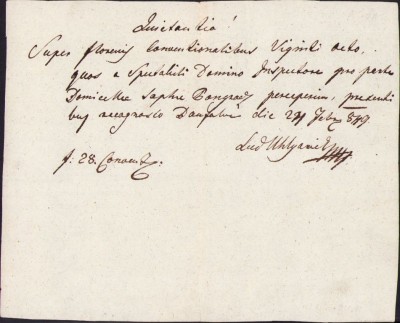 Quietantia!
Super florenis Conventionalibus Viginti octo,
quos a Spectabili Domino Inspectore pro parte
Domicellae Saphie Pongratz perceperim, praesenti
bus recognosco die 24 Febr 849
Lud Uhlyarik
f. 28. Convent.